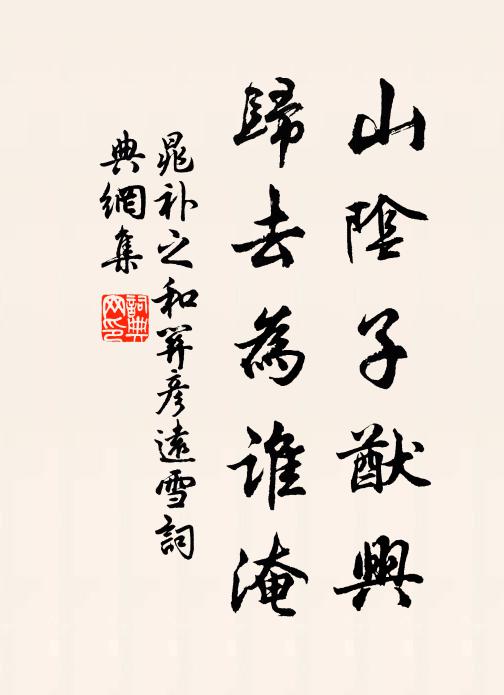 山陰子猷興
歸去為誰淹
晁补之和關彥遠雪詞
典網集
詞典
网印